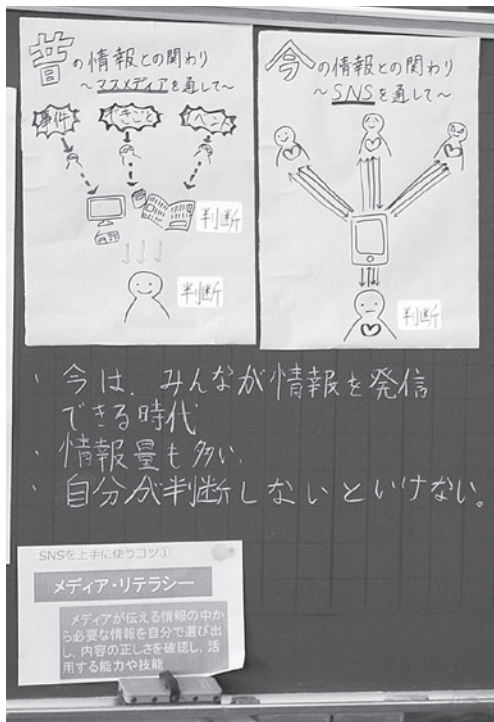 昔の情報との関わり
～マスメディアを通して～
事件
できごと
イベント
判断
判断
今の情報との関わり
～SNSを通して～
判断
・今は、みんなが情報を発信
できる時代
・情報量も多い。
・自分が判断しないといけない。
SNSを上手に使うコツ①
メディア・リテラシー
メディアが伝える情報の中か
ら必要な情報を自分で選び出
し、内容の正しさを確認し、活
用する能力や技能